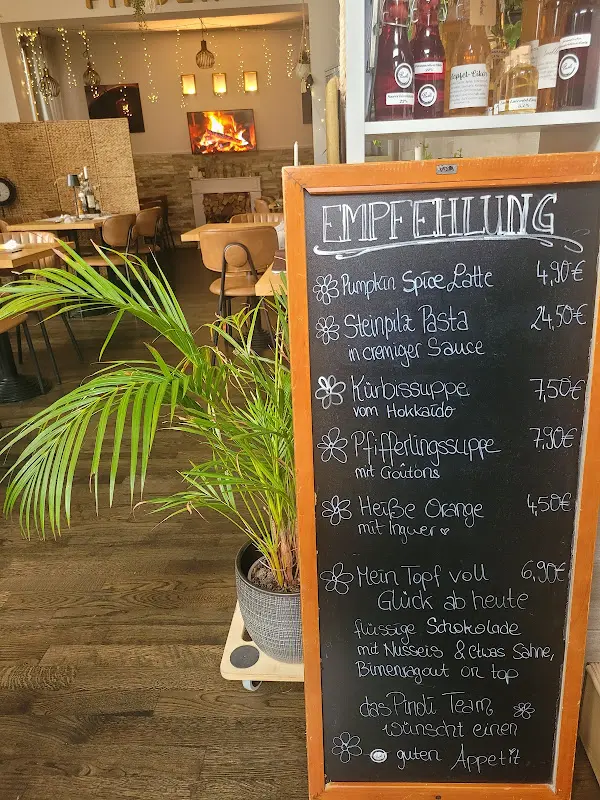 EMPFEHLUNG
Pumpkin Spice Latte 4,90€
Steinpilz Pasta 24,50€
in cremiger Sauce
Kürbissuppe 7,50€
vom Hokkaido
Pfifferlingssuppe 7,90€
mit Croûtons
Heiße Orange 4,50€
mit Ingwer
Mein Topf voll 6,90€
Glück ab heute
flüssige Schokolade
mit Nusseis & etwas Sahne,
Birnenragout on top
das Pinoti Team
wünscht einen
guten Appetit